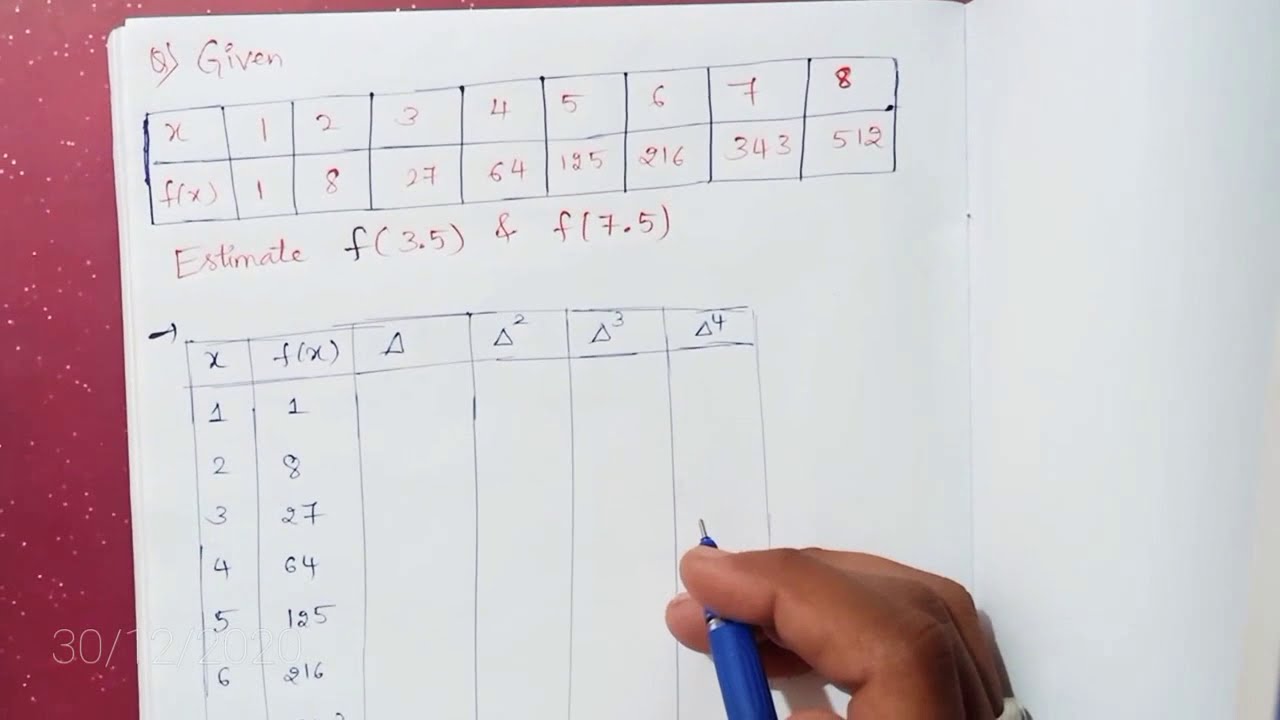 Q) Given
x 1 2 3 4 5 6 7 8
f(x) 1 8 27 64 125 216 343 512
Estimate f(3.5) & f(7.5)
→
x f(x) Δ Δ² Δ³ Δ⁴
1 1
2 8
3 27
4 64
5 125
6 216
30/12/2020